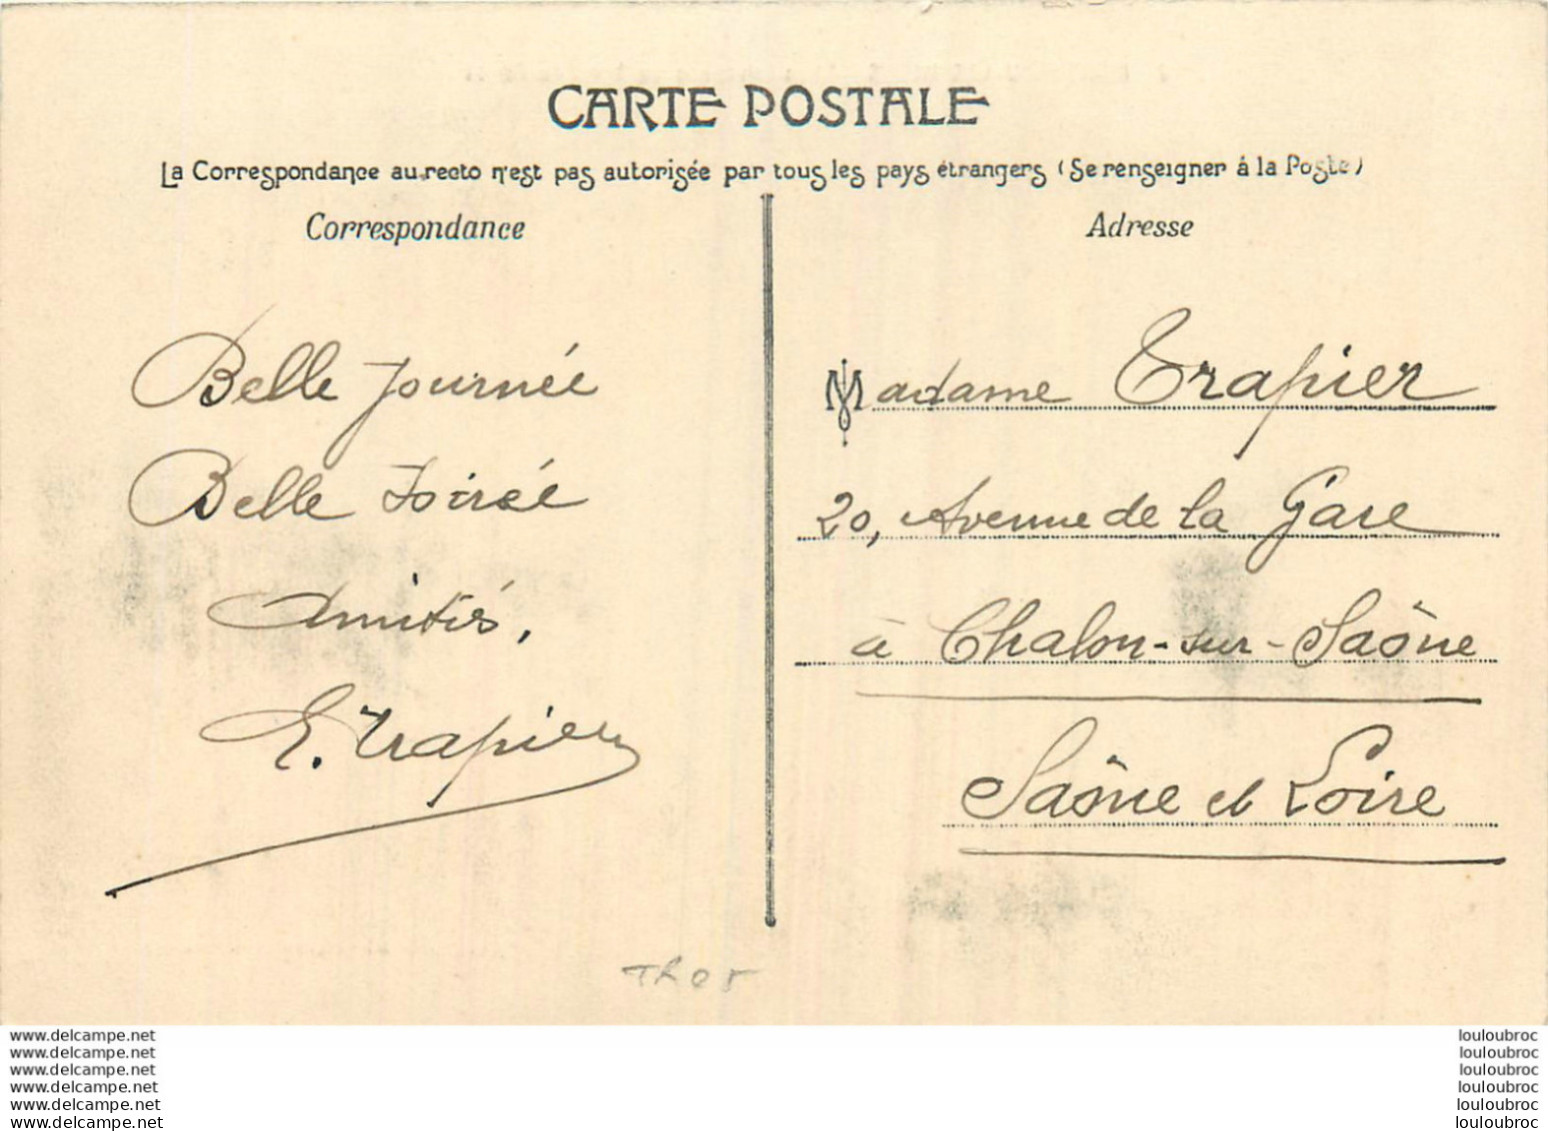 CARTE POSTALE
La Correspondance au recto n'est pas autorisée par tous les pays étrangers (Se renseigner à la Poste)
Correspondance
Belle Journée
Belle Soirée
Amitiés,
E. Trapier
Adresse
Madame Trapier
20, Avenue de la Gare
à Chalon-sur-Saône
Saône et Loire
www.delcampe.net
www.delcampe.net
www.delcampe.net
www.delcampe.net
www.delcampe.net
www.delcampe.net
louloubroc
louloubroc
louloubroc
louloubroc
louloubroc
louloubroc